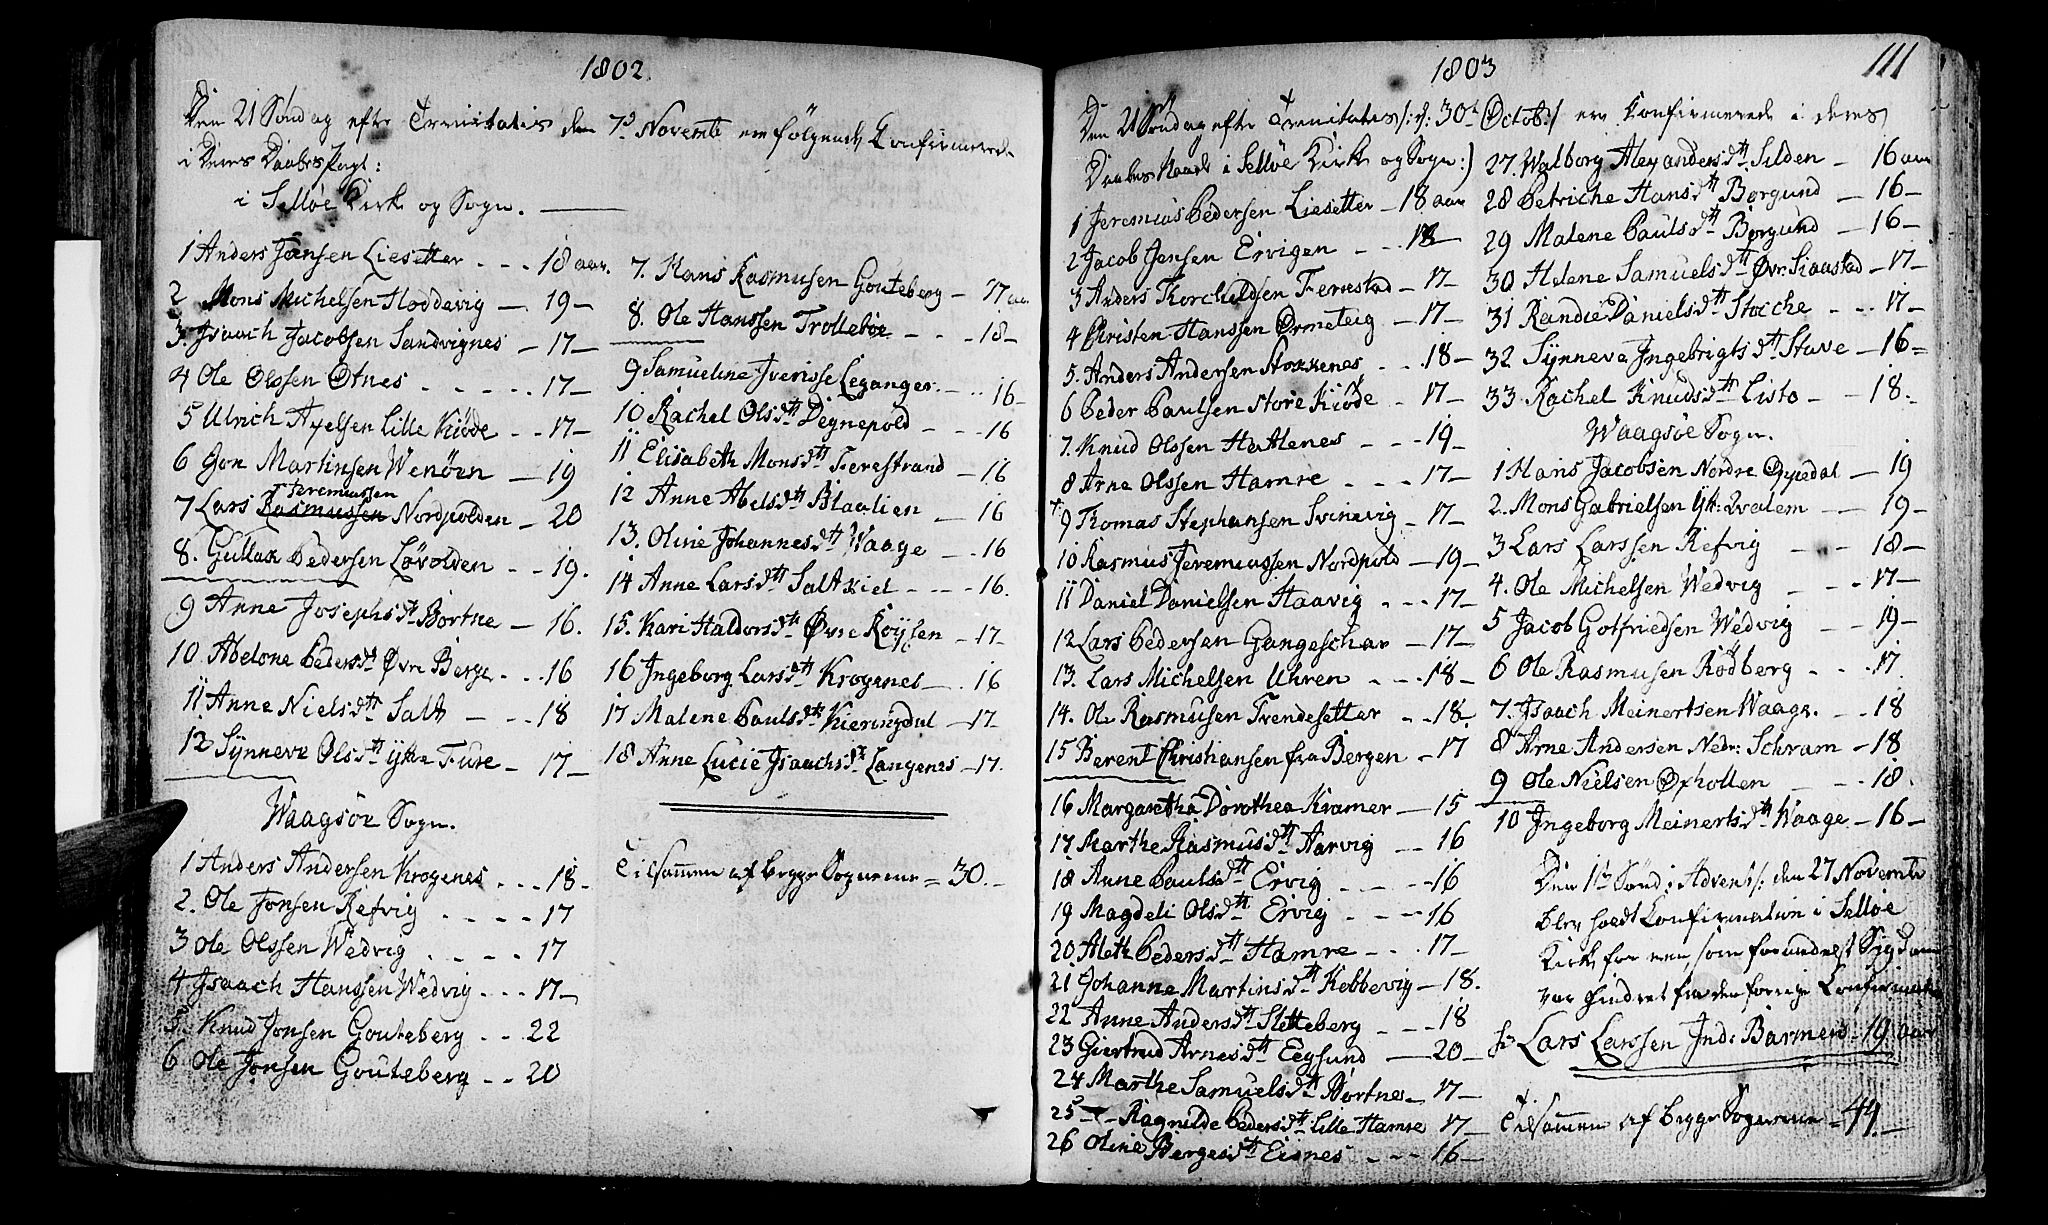 1802.
Den 21 Søndag efter Trinitatis den 7de Novembr ere følgende Confirmerede
i Deres Daabes Pagt:
i Selløe Kirke og Sogn.
1 Anders Jansen Liesetter - - - 18 aar.
2 Mons Michelsen Hoddevig - 19 -
3. Isaach Jacobsen Sandvignes - 17 -
4 Ole Olssen Otnes - - - - - 17 -
5 Ulrich Axelsen Lille Kiøde - - 17 -
6 Gon Martinsen Wenøen - 19
7 Lars Rasmussen Jeremiassen Nordpolden - 20
8. Gullak Pedersen Løvolden - - 19.
9 Anne Josephsdtr Børtne - 16.
10. Abelone Pedersdtr Øvre Berge - - - 16
11 Anne Nielsdtr Salt - - - 18
12 Synneve Olsdtr Ytre Fure - 17 -
Waagsøe Sogn.
1 Anders Andersen Krogenes - - - 18 -
2. Ole Jonsen Refvig - - - - 17
3 Ole Olssen Wedvig - - - - 17
4 Isaach Hanssen Wedvig - - - 17 -
5. Knud Jonsen Gouteberg - - - 22
6 Ole Jonsen Gouteberg - - 20
7. Hans Rasmusen Gouteberg - 17 aar
8. Ole Hanssen Trolleböe - - - 18 -
9 Samueline Iverisse Leganger. - - - 16 -
10 Rachel Olsdtr Degnepold - - - - 16
11 Elisabeth Monsdtr Ferestrand - 16
12 Anne Abelsdtr Blaalien - 16
13. Oline Johannesdtr Waage - - 16
14 Anne Larsdtr Saltkiel - - - - 16.
15. Kari Haldorsdtr Øvre Röysen - 17 -
16 Ingeborg Larsdtr Krogenes - - 16
17 Malene Paulsdtr Kieringdal - 17 -
18 Anne Lucie Isaachsdtr Langenes - 17.
Tilsammen af begge Sognerne = 30. -
1803
111
Den 21 Søndag efter Trinitatis /: d: 30te Octob:/ ere Confirmerede i deres
Daabes Naade i Selløe Kirke og Sogn:)
1 Jeremias Pedersen Liesetter - 18 aar
2 Jacob Jensen Ervigen - - - 18 -
3 Anders Thorchildsen Ferestad - 17 -
4 Christen Hanssen Ormeteig - 17 -
5. Anders Andersen Hoxenes - - - 18 -
6 Peder Paulsen Store Kiøde - 17 -
7. Knud Olssen Hatlenes - - - 19 -
8 Arne Olssen Hamre - - - - 17 -
9 Thomas Stephansen Svinevig - 17 -
10 Rasmus Jeremiassen Nordpold - 19 -
11 Daniel Danielsen Haavig - - - 17 -
12 Lars Pedersen Gangeschar - 17 -
13. Lars Michelsen Uhren - - - 18 -
14. Ole Rasmusen Trendesetter - - 18.
15 Berent Christiansen fra Bergen - 17
16 Margaretha Dorothea Kramer - 15
17. Marthe Rasmusdtr Aarvig - - 16
18 Anne Paulsdtr Ervig - - - - 16
19 Magdeli Olsdtr Ervig - - - - 16
20. Aleth Pedersdtr Hamre - - - 17 -
21 Johanne Martinsdtr Kobbevig - 18.
22 Anne Andersdtr Sletteberg - - - 18
23 Giertrud Arnesdtr Eegsund - 20 -
24 Marthe Samuelsdtr Børtnes - 17 -
25 Ragnilde Pedersdtr Lille Hamre 17 -
26 Oline Børgesdtr Eisnes - - - 16 -
27. Walborg Alexandersdtr Silden - 16 aar
28 Petriche Hansdtr Borgund - 16 -
29 Malene Paulsdtr Borgund - 16 -
30 Helene Samuelsdtr Øvre Siaastad - 17 -
31 Randie Danielsdtr Stoche - - - 17 -
32 Synneve Ingebrigtsdtr Stave - 16 =
33 Rachel Knudsdtr Listo - - 18.
Waagsøe Sogn.
1 Hans Jacobsen Nordre Oppedal - 19
2. Mons Gabrielsen Ytr: Qvalem - 19 -
3 Lars Larssen Refvig - - - 18 -
4. Ole Michelsen Wedvig - - - 17 -
5 Jacob Gotfriedsen Wedvig - - 19 -
6 Ole Rasmusen Rödberg - - - 17
7. Isaach Meinertsen Waage. - - 18
8 Arne Andersen Nedr: Schram - 18
9 Ole Nielsen Ophollen - - - 18.
10 Ingeborg Meinertsdtr Waage - 16 -
Den 1te Sønd: i Advent /: den 27 Novembr
blev holdt Confirmation i Selløe
Kirke for een, som formedelst Sygdom
var hindret fra den forrige Confirmation
Lars Larssen Ind: Barmen - 19 aar
Tilsammen af begge Sognerne - 44. -